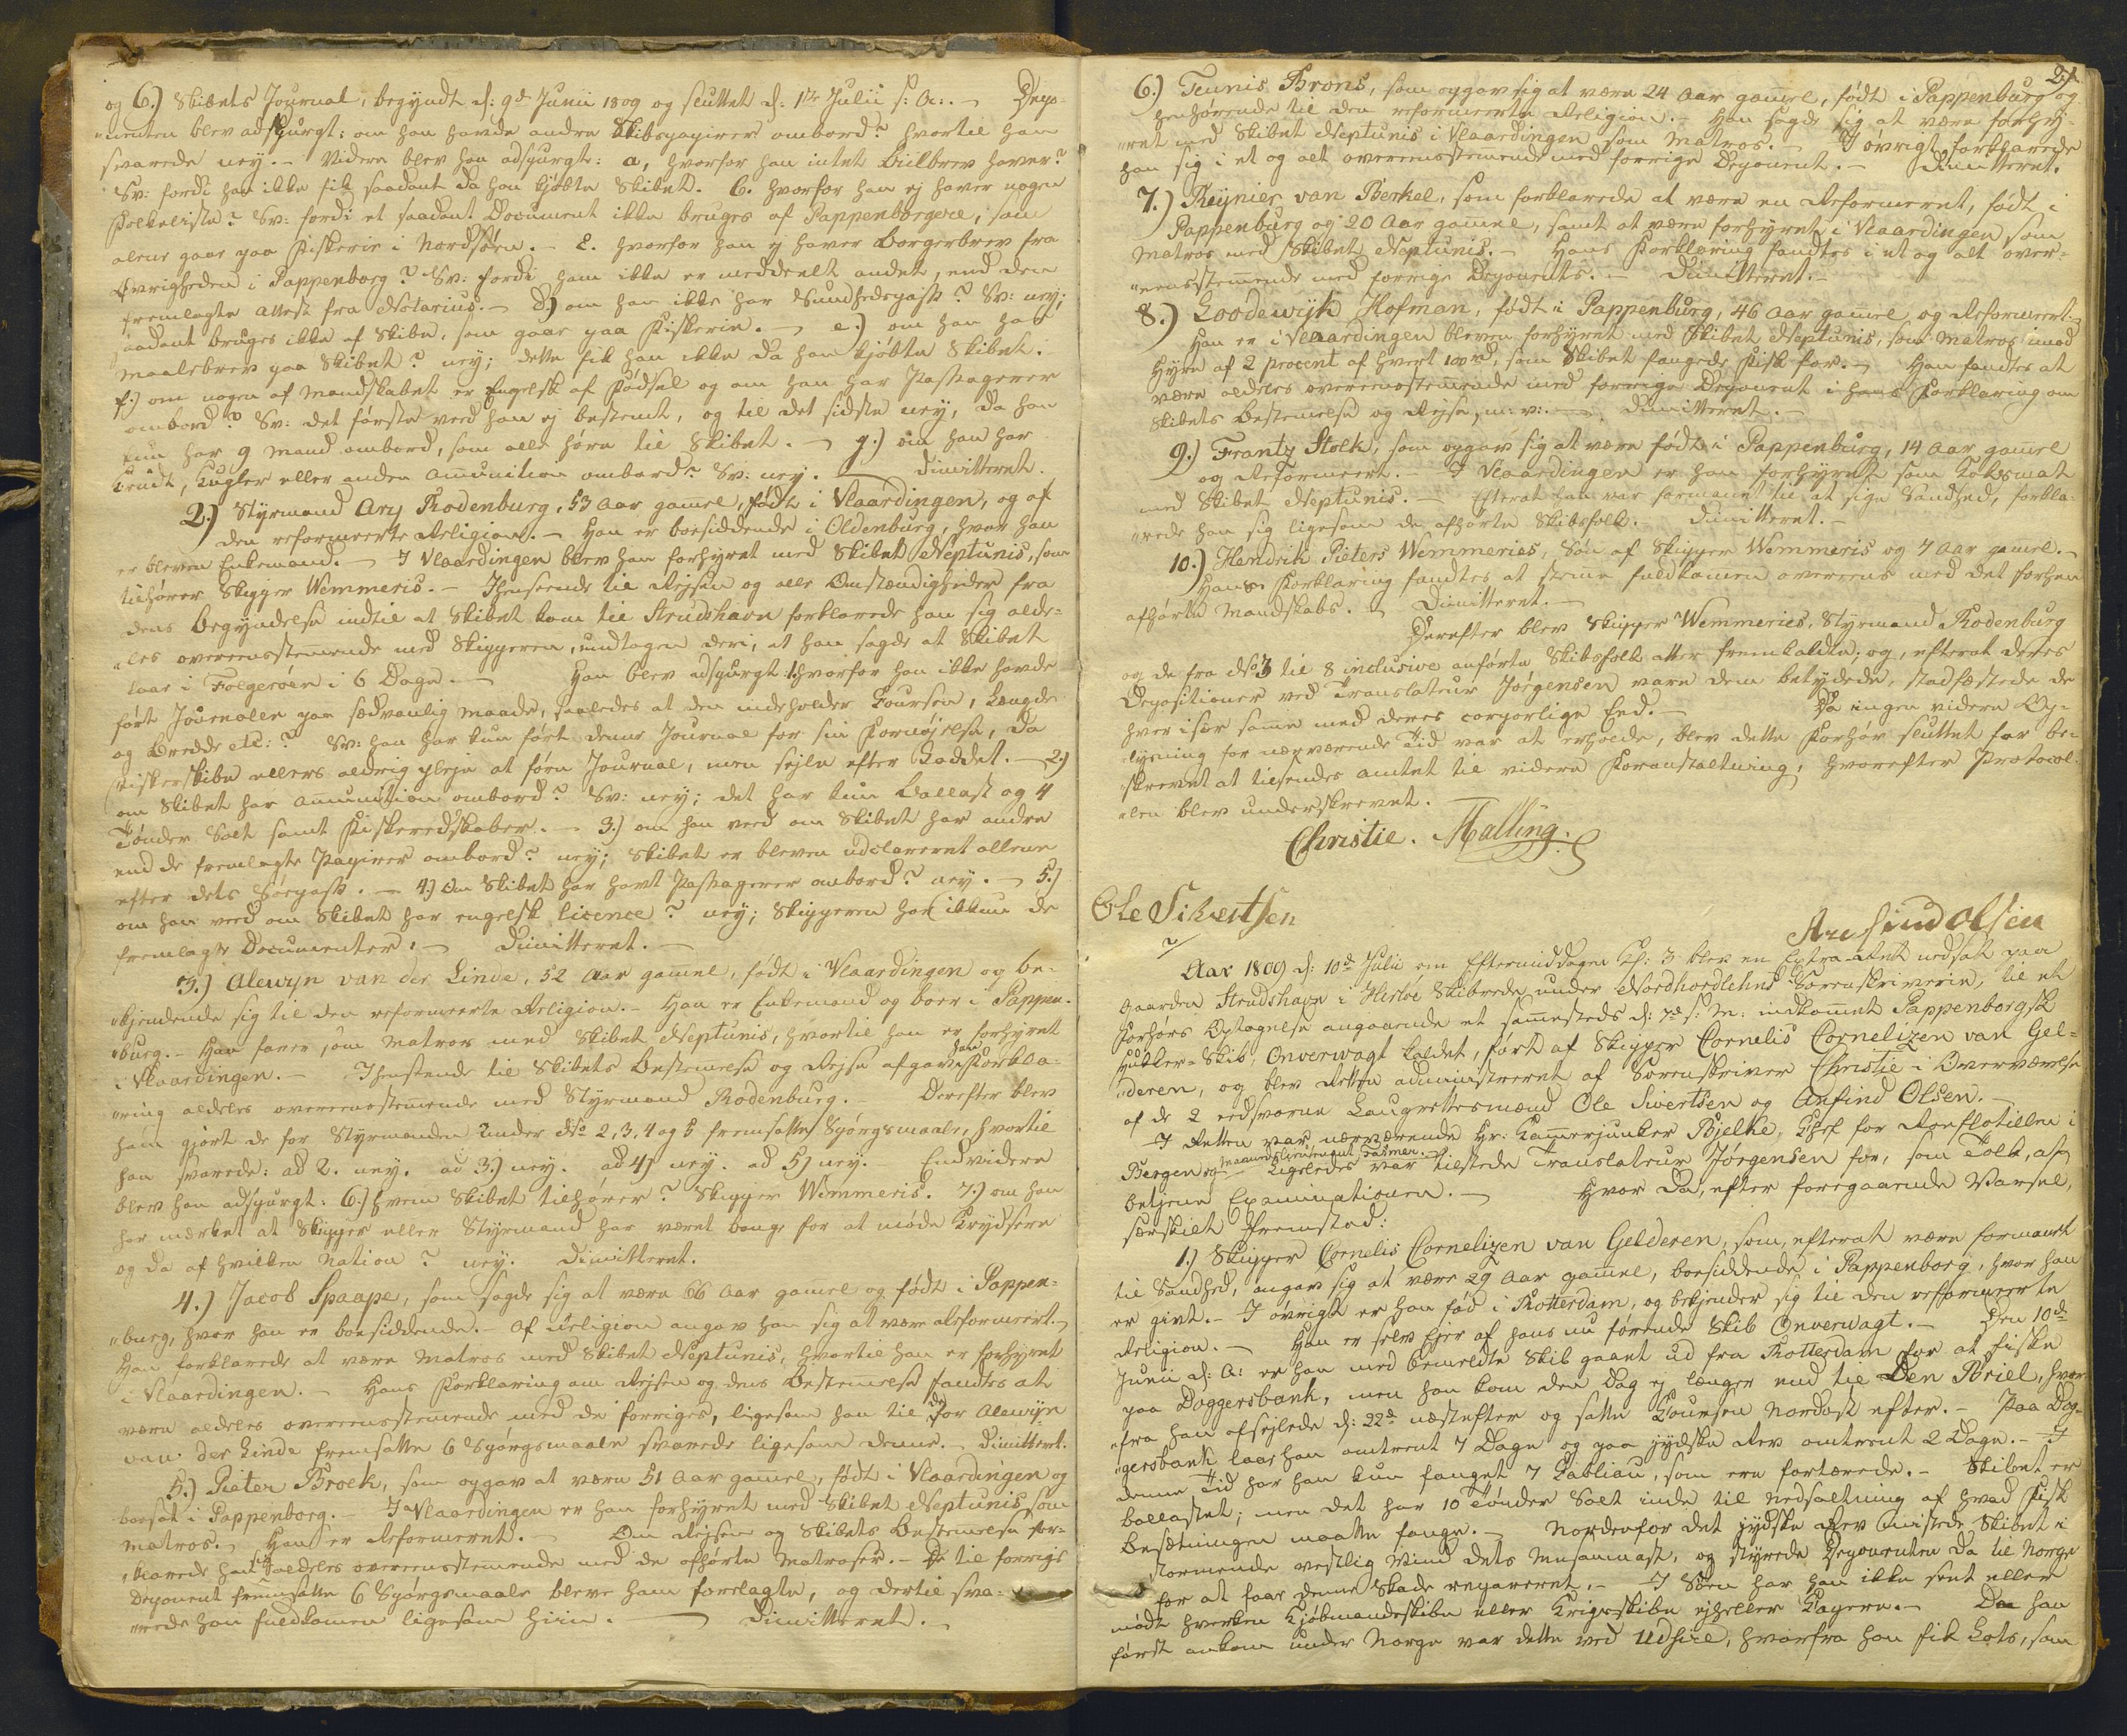 og 6.) Skibets Journal, begyndt d: 9de Junii 1809 og sluttet d: 1ste Julii s: A:. — Depo-
„nenten blev adspurgt: om han havde andre Skibspapirer ombord? hvortil han
svarede ney. – Videre blev han adspurgt: a, hvorfor han intet Biilbrev haver?
Sv: fordi han ikke fik saadant da han kjøbte Skibet. b. hvorfor han ej haver nogen
Folkeliste? Sv: fordi et saadant Document ikke bruges af Pappenborgere, som
alene gaar paa Fiskerie i Nordsøen. – c. hvorfor han ej haver Borgerbrev fra
Øvrigheden i Pappenborg? Sv: fordi ham ikke er meddeelt andet, end den
fremlagte Attest fra Notarius. – d) om han ikke har Sundhedspass? Sv: ney;
saadant bruges ikke af Skibe, som gaar paa Fiskerie. – e.) om han har
Maalebrev paa Skibet? ney; dette fik han ikke da han kjøbte Skibet.
f.) om nogen af Mandskabet er Engelsk af Fødsel og om han har Passagerer
ombord? Sv: det første veed han ej bestemt, og til det sidste ney, da han
kun har 9 Mand ombord, som alle høre til Skibet. – g.) om han har
Krudt, Kugler eller anden Amunition ombord? Sv: ney. — Dimitteret.
2.) Styrmand Ary Rodenburg, 53 Aar gamel, født i Vlaardingen, og af
den reformeerte Religion. – Han er boesiddende i Oldenburg, hvor han
er bleven Enkemand. – I Vlaardingen blev han forhyret med Skibet Neptunis, som
tilhører Skipper Wemmeris. – Ihenseende til Rejsen og alle Omstændigheder fra
dens Begyndelse indtil at Skibet kom til Strudshavn forklarede han sig alde-
„les overeensstemende med Skipperen, undtagen deri, at han sagde at Skibet
laae i Folgerøen i 6 Dage. — Han blev adspurgt: 1. hvorfor han ikke havde
ført Journalen paa sædvanlig Maade, saaledes at den indeholder Coursen, Længde
og Bredde etc:? Sv: han har kun ført denne Journal for sin Fornøjelse, da
Fiskerskibe ellers aldrig pleje at føre Journal, men sejle efter Loddet. – 2.)
om Skibet har Amunition ombord? Sv: ney; det har kun Ballast og 4
Tønder Salt samt Fiskeredskaber. – 3.) om han veed om Skibet har andre
end de fremlagte Papirer ombord? ney; Skibet er bleven udclareret allene
efter dets Søepass. – 4.) Om Skibet har havt Passagerer ombord? ney. – 5.)
om han veed om Skibet har engelsk licence? ney; Skipperen har ikkun de
fremlagte Documenter. – Dimitteret. –
3.) Alewyn van der Linde, 52 Aar gamel, født i Vlaardingen og be-
„kjendende sig til den reformeerte Religion. – Han er Enkemand og boer i Pappen-
„burg. – Han farer som Matros med Skibet Neptunis, hvortil han er forhyret
i Vlaardingen. – Ihenseende til Skibets Bestemelse og Rejse afgav han Forkla-
„ring aldeles overeensstemende med Styrmand Rodenburg. – Derefter blev
ham gjort de for Styrmanden under No 2, 3, 4 og 5 fremsatte Spørgsmaale, hvortil
han svarede: ad 2. ney. ad 3.) ney. ad 4) ney. ad 5) ney. – Endvidere
blev han adspurgt: 6.) hvem Skibet tilhører? Skipper Wemmeris. 7.) om han
har mærket at Skipper eller Styrmand har været bange for at møde Krydsere
og da af hvilken Nation? ney. Dimitteret.
4.) Jacob Spaape, som sagde sig at være 66 Aar gamel og født i Pappen-
„burg, hvor han er boesiddende. – Af Religion angav han sig at være Reformeert. –
Han forklarede at være Matros med Skibet Neptunis, hvortil han er forhyret
i Vlaardingen. – Hans Forklaring om Rejsen og dens Bestemelse fandtes at
være aldeles overeensstemende med de forriges, ligesom han til de for Alewijn
van der Linde fremsatte 6 Spørgsmaale svarede ligesom denne. – Dimitteret.
5.) Pieter Broek, som opgav at være 51 Aar gamel, født i Vlaardingen og
boesat i Pappenborg. – I Vlaardingen er han forhyret med Skibet Neptunis som
Matros. – Han er Reformeret. – Om Rejsen og Skibets Bestemelse for-
„klarede han sig aldeles overeensstemende med de afhørte Matroser. – De til forrige
Deponent fremsatte 6 Spørgsmaale bleve ham forelagte, og dertil sva-
„rede han fuldkomen ligesom hiin. — Dimitteret. –
2.
6.) Teunis Brons, som opgav sig at være 24 Aar gamel, født i Pappenburg og
henhørende til den reformeerte Religion. – Han sagde sig at være forhy-
„ret med Skibet Neptunis i Vlaardingen som Matros. – I øvrigt forklarede
han sig i et og alt overeensstemende med forrige Deponent. – Dimitteret.
7.) Reynier van Berkel, som forklarede at være en Reformeret, født i
Pappenburg og 20 Aar gamel, samt at være forhyret i Vlaardingen som
Matros med Skibet Neptunis. – Hans Forklaring fandtes i et og alt over-
„eensstemende med forrige Deponents. – Dimitteret. –
8.) Loodewijk Hofman, født i Pappenburg, 46 Aar gamel og Reformeert. –
Han er i Vlaardingen bleven forhyret med Skibet Neptunis, som Matros imod
Hyre af 2 procent af hvert 100rd, som Skibet fangede Fisk for. – Han fandtes at
være aldeles overeensstemende med forrige Deponent i hans Forklaring om
Skibets Bestemelse og Rejse m: v:. — Dimitteret. –
9.) Frantz Stolk, som opgav sig at være født i Pappenburg, 14 Aar gamel
og Reformeert. – I Vlaardingen er han forhyret som Koksmat
med Skibet Neptunis. – Efterat han var formanet til at sige Sandhed, forkla-
„rede han sig ligesom de afhørte Skibsfolk. – Dimitteret. –
10.) Hendrik Pieters Wemmeries, Søn af Skipper Wemmeris og 7 Aar gamel. –
Hans Forklaring fandtes at stemme fuldkomen overeens med det forhen
afhørte Mandskabs. – Dimitteret. –
Derefter blev Skipper Wemmeries, Styrmand Rodenburg
og de fra No 3 til 8 inclusive anførte Skibsfolk atter fremkaldte; og, efterat deres
Depositioner ved Translateur Jørgensen vare dem betydede, stadfæstede de
hver især samme med deres corporlige Eed. – Da ingen videre Op-
„lysning for nærværende Tid var at erholde, blev dette Forhør sluttet for be-
„skrevet at tilsendes Amtet til videre Foranstaltning, hvorefter Protocol-
„len blev underskrevet.
Christie. Malling.
Ole Sivertsen
Arnfind Olsen
Aar 1809 d: 10de Julii om Eftermiddagen Kl: 3 blev en Extra-Ret nedsat paa
Gaarden Strudshavn i Herløe Skibrede under Nordhordlehns Sorenskriverie, til et
Forhørs Optagelse angaaende et sammesteds d: 7de s: M: indkommet Pappenborgsk
Hukker-Skib, Onverwagt kaldet, ført af Skipper Cornelis Cornelizen van Gel-
„deren, og blev Retten administreret af Sorenskriver Christie i Overværelse
af de 2 eedsvorne Laugrettesmænd Ole Sivertsen og Anfind Olsen. –
I Retten var nærværende Hr: Kammerjunker Bjelke, Chef for Roeflotillen i
Bergen og Maanedslieutenant Fasmer. – Ligeledes var tilstede Translateur Jørgensen for, som Tolk, at
betjene Examinationen. – Hvor da, efter foregaaende Varsel,
særskilt fremstod:
1.) Skipper Cornelis Cornelizen van Gelderen, som, efterat være formanet
til Sandhed, angav sig at være 29 Aar gammel, boesiddende i Pappenborg, hvor han
er givt. – I øvrigt er han fød i Rotterdam, og bekjender sig til den reformeerte
Religion. – Han er selv Ejer af hans nu førende Skib Onverwagt. – Den 10de
Junii d: A: er han med bemeldte Skib gaaet ud fra Rotterdam for at fiske
paa Doggersbank, men han kom den Dag ej længer end til Den Briel, hvor-
„fra han afsejlede d: 22de næstefter og satte Coursen Nordost efter. – Paa Dog-
„gersbank laae han omtrent 7 Dage og paa jydske Rev omtrent 2 Dage. – I
denne Tid har han kun fanget 7 Cabliau, som ere fortærede. – Skibet er
ballastet; men det har 10 Tønder Salt inde til Nedsaltning af hvad Fisk
Besætningen maatte fange. – Nordenfor det jydske Rev mistede Skibet i
stormende vestlig Vind dets Mesanmast, og styrede Deponenten da til Norge
for at faae denne Skade repareret. – I Søen har han ikke seet eller
mødt hverken Kjøbmandsskibe eller Krigsskibe ejheller Capere. – Da han
først ankom under Norge var dette ved Udsire, hvorfra han fik Lots, som